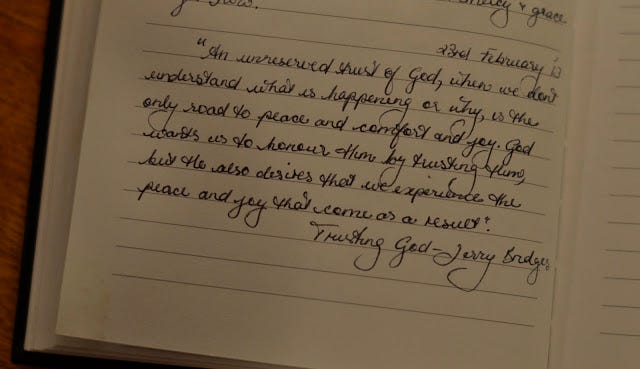 mercy & grace
23rd February 13
"An unreserved trust of God, when we don't
understand what is happening or why, is the
only road to peace and comfort and joy. God
wants us to honour Him by trusting Him,
but He also desires that we experience the
peace and joy that come as a result".
Trusting God - Jerry Bridges